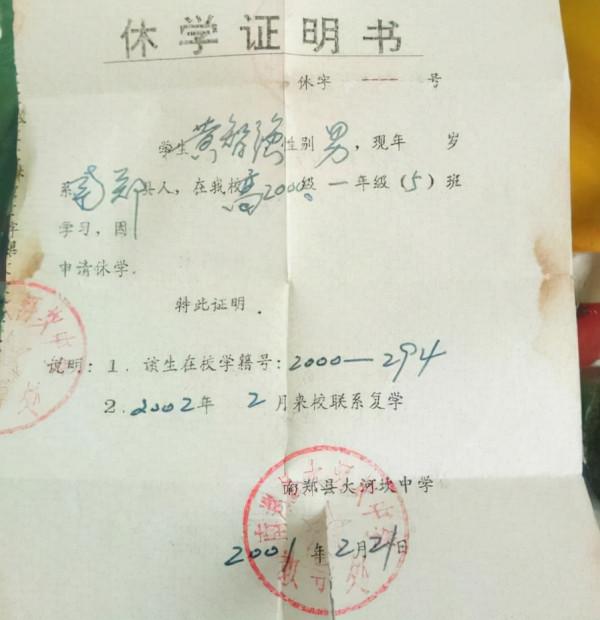 休学证明书
休字 ---- 号
学生黄智强性别男，现年 岁
系南郑县人，在我校高2000级一年级（5）班
学习，因
申请休学.
特此证明.
说明：1. 该生在校学籍号：2000—294
2. 2002年 2月来校联系复学
南郑县大河坎中学
2001年2月21日
教导处